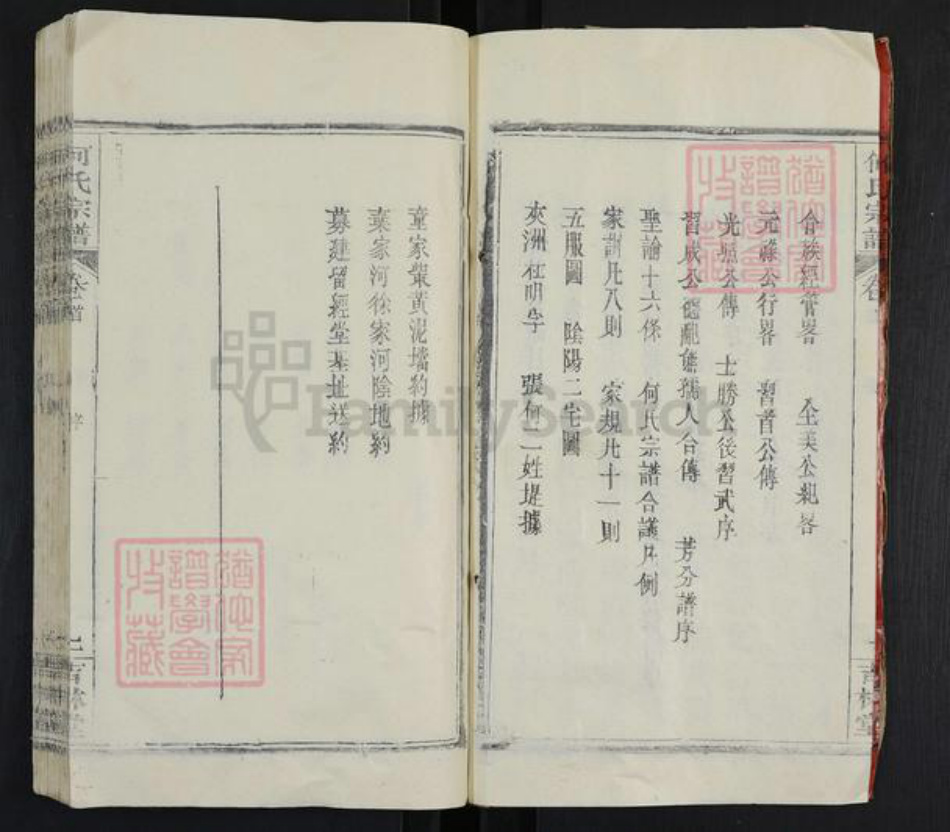 何氏宗譜
卷首
合族經管畧 公美公紀畧
元祿公行畧 習首公傳
光照公傳 士勝公後習武序
習成公德配熊孺人合傳 芳分譜序
聖諭十六條 何氏宗譜合議凡例
家訓凡八則 家規凡十一則
五服圖 陰陽二宅圖
夾洲在明字 張何二姓堤據
吉林堂
童家𡒄黃泥壋約據
葉家河徐家河陰地約
募建留經堂基址送約
何氏宗譜
卷首
序
二
吉林堂
猶他家譜學會收藏
猶他家譜學會收藏
FamilySearch